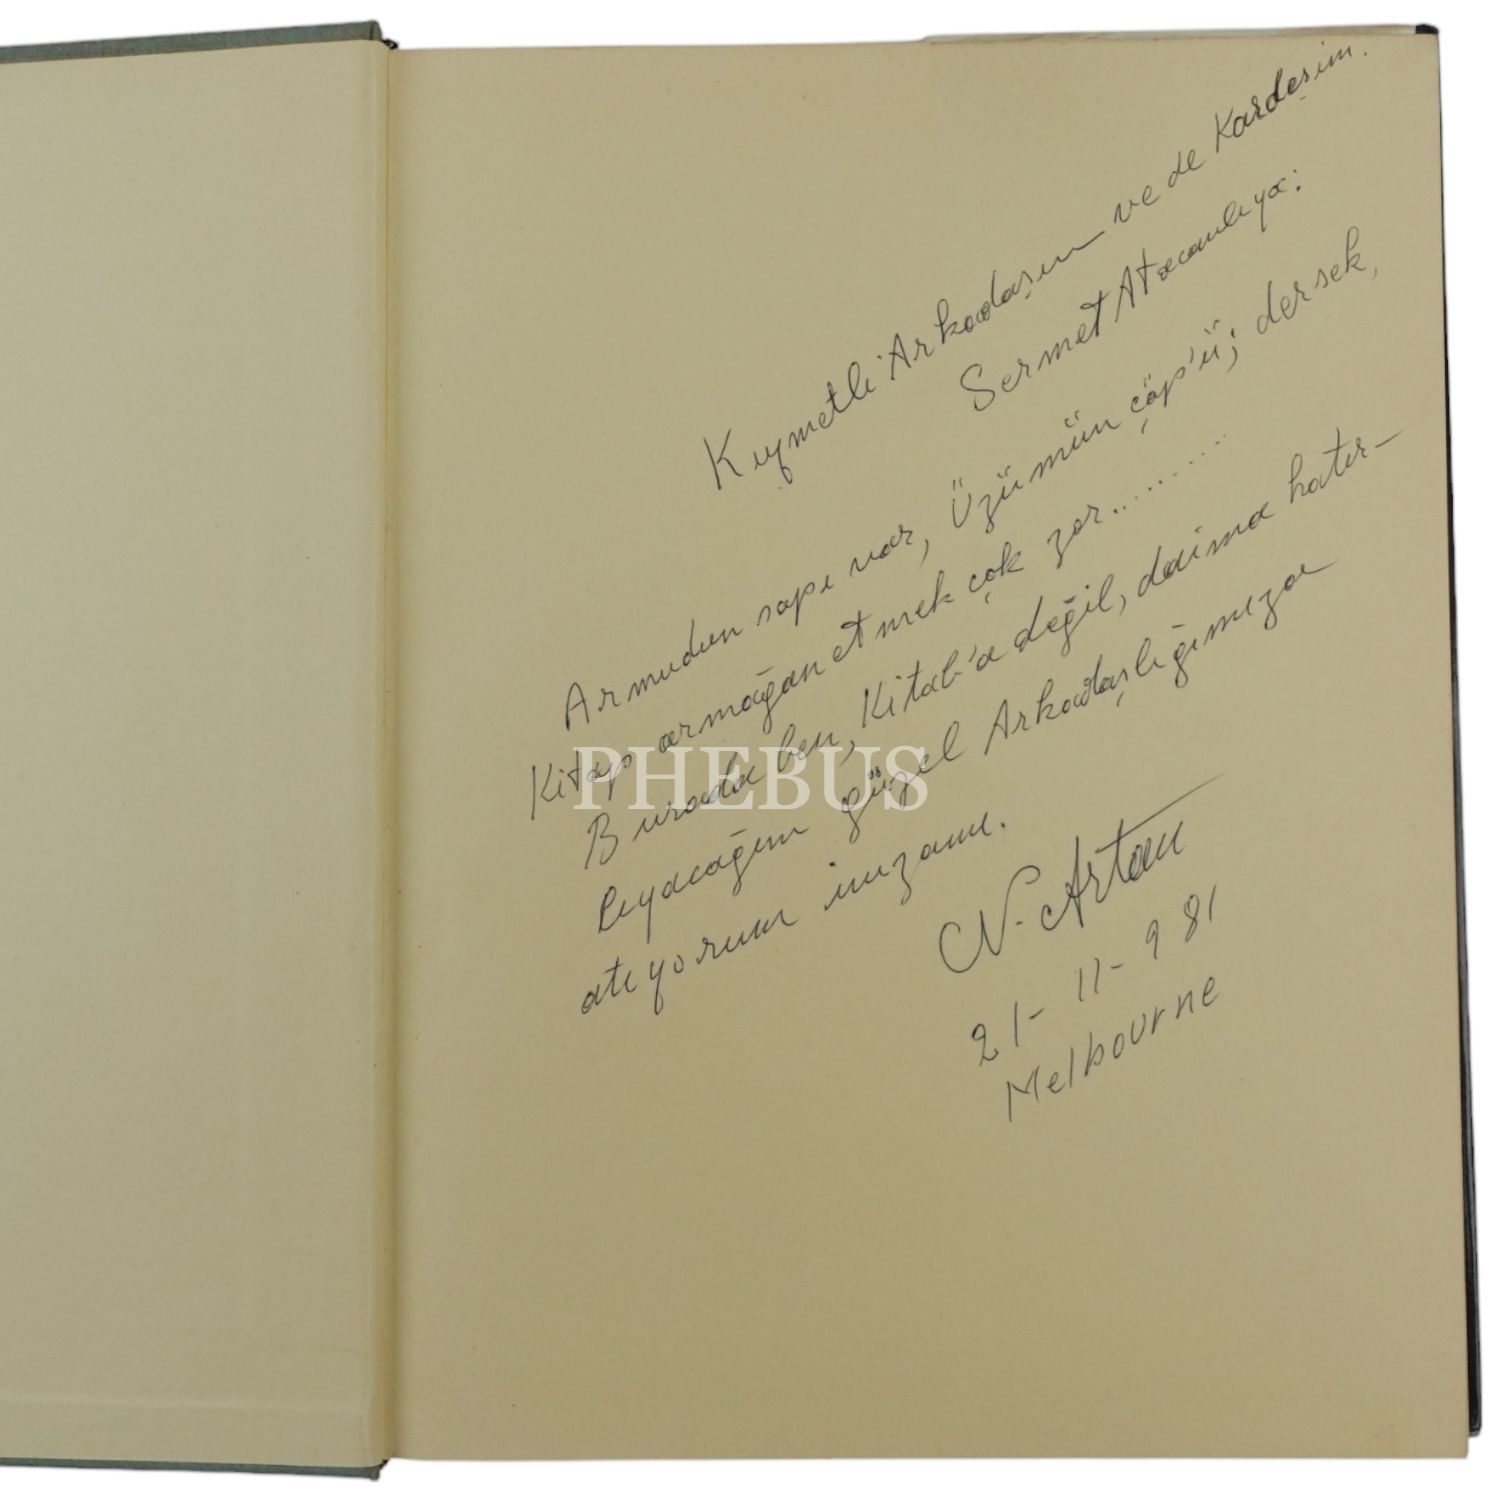 Kıymetli Arkadaşım ve de Kardeşim.
Sermet Atacanlıya:
Armudun sapı var, Üzümün çöp'ü; dersek,
Kitap armağan etmek çok zor..........
Burada ben, Kitab'a değil, daima hatır-
lıyacağım güzel Arkadaşlığımıza
atıyorum imzamı.
N. Artan
21-11-981
Melbourne
PHEBUS